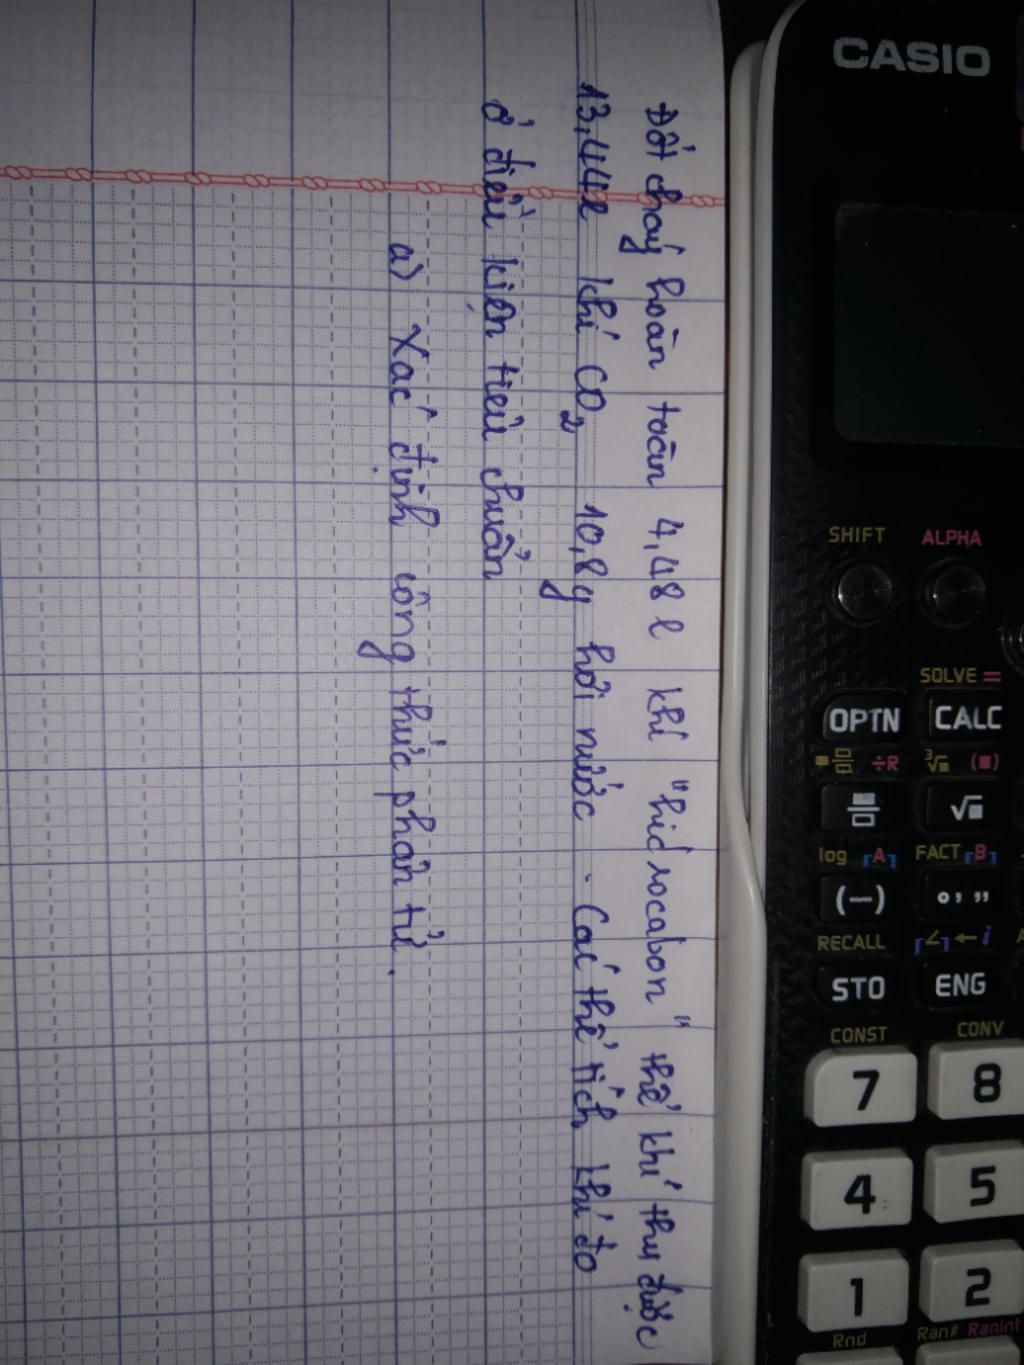 Đốt cháy hoàn toàn 4,48 l khí "hidrocabon" thể khí thu được
13,44l khí CO₂ 10,8g hơi nước. Các thể tích khí đo
ở điều kiện tiêu chuẩn
a) Xác định công thức phân tử.
CASIO
SHIFT ALPHA
SOLVE =
OPTN CALC
÷R ³√■ (■)
√■
log A FACT B
(−) ° ’ ”
RECALL ∠ ← i
STO ENG
CONST CONV
7 8
4 5
1 2
Rnd Ran# RanInt